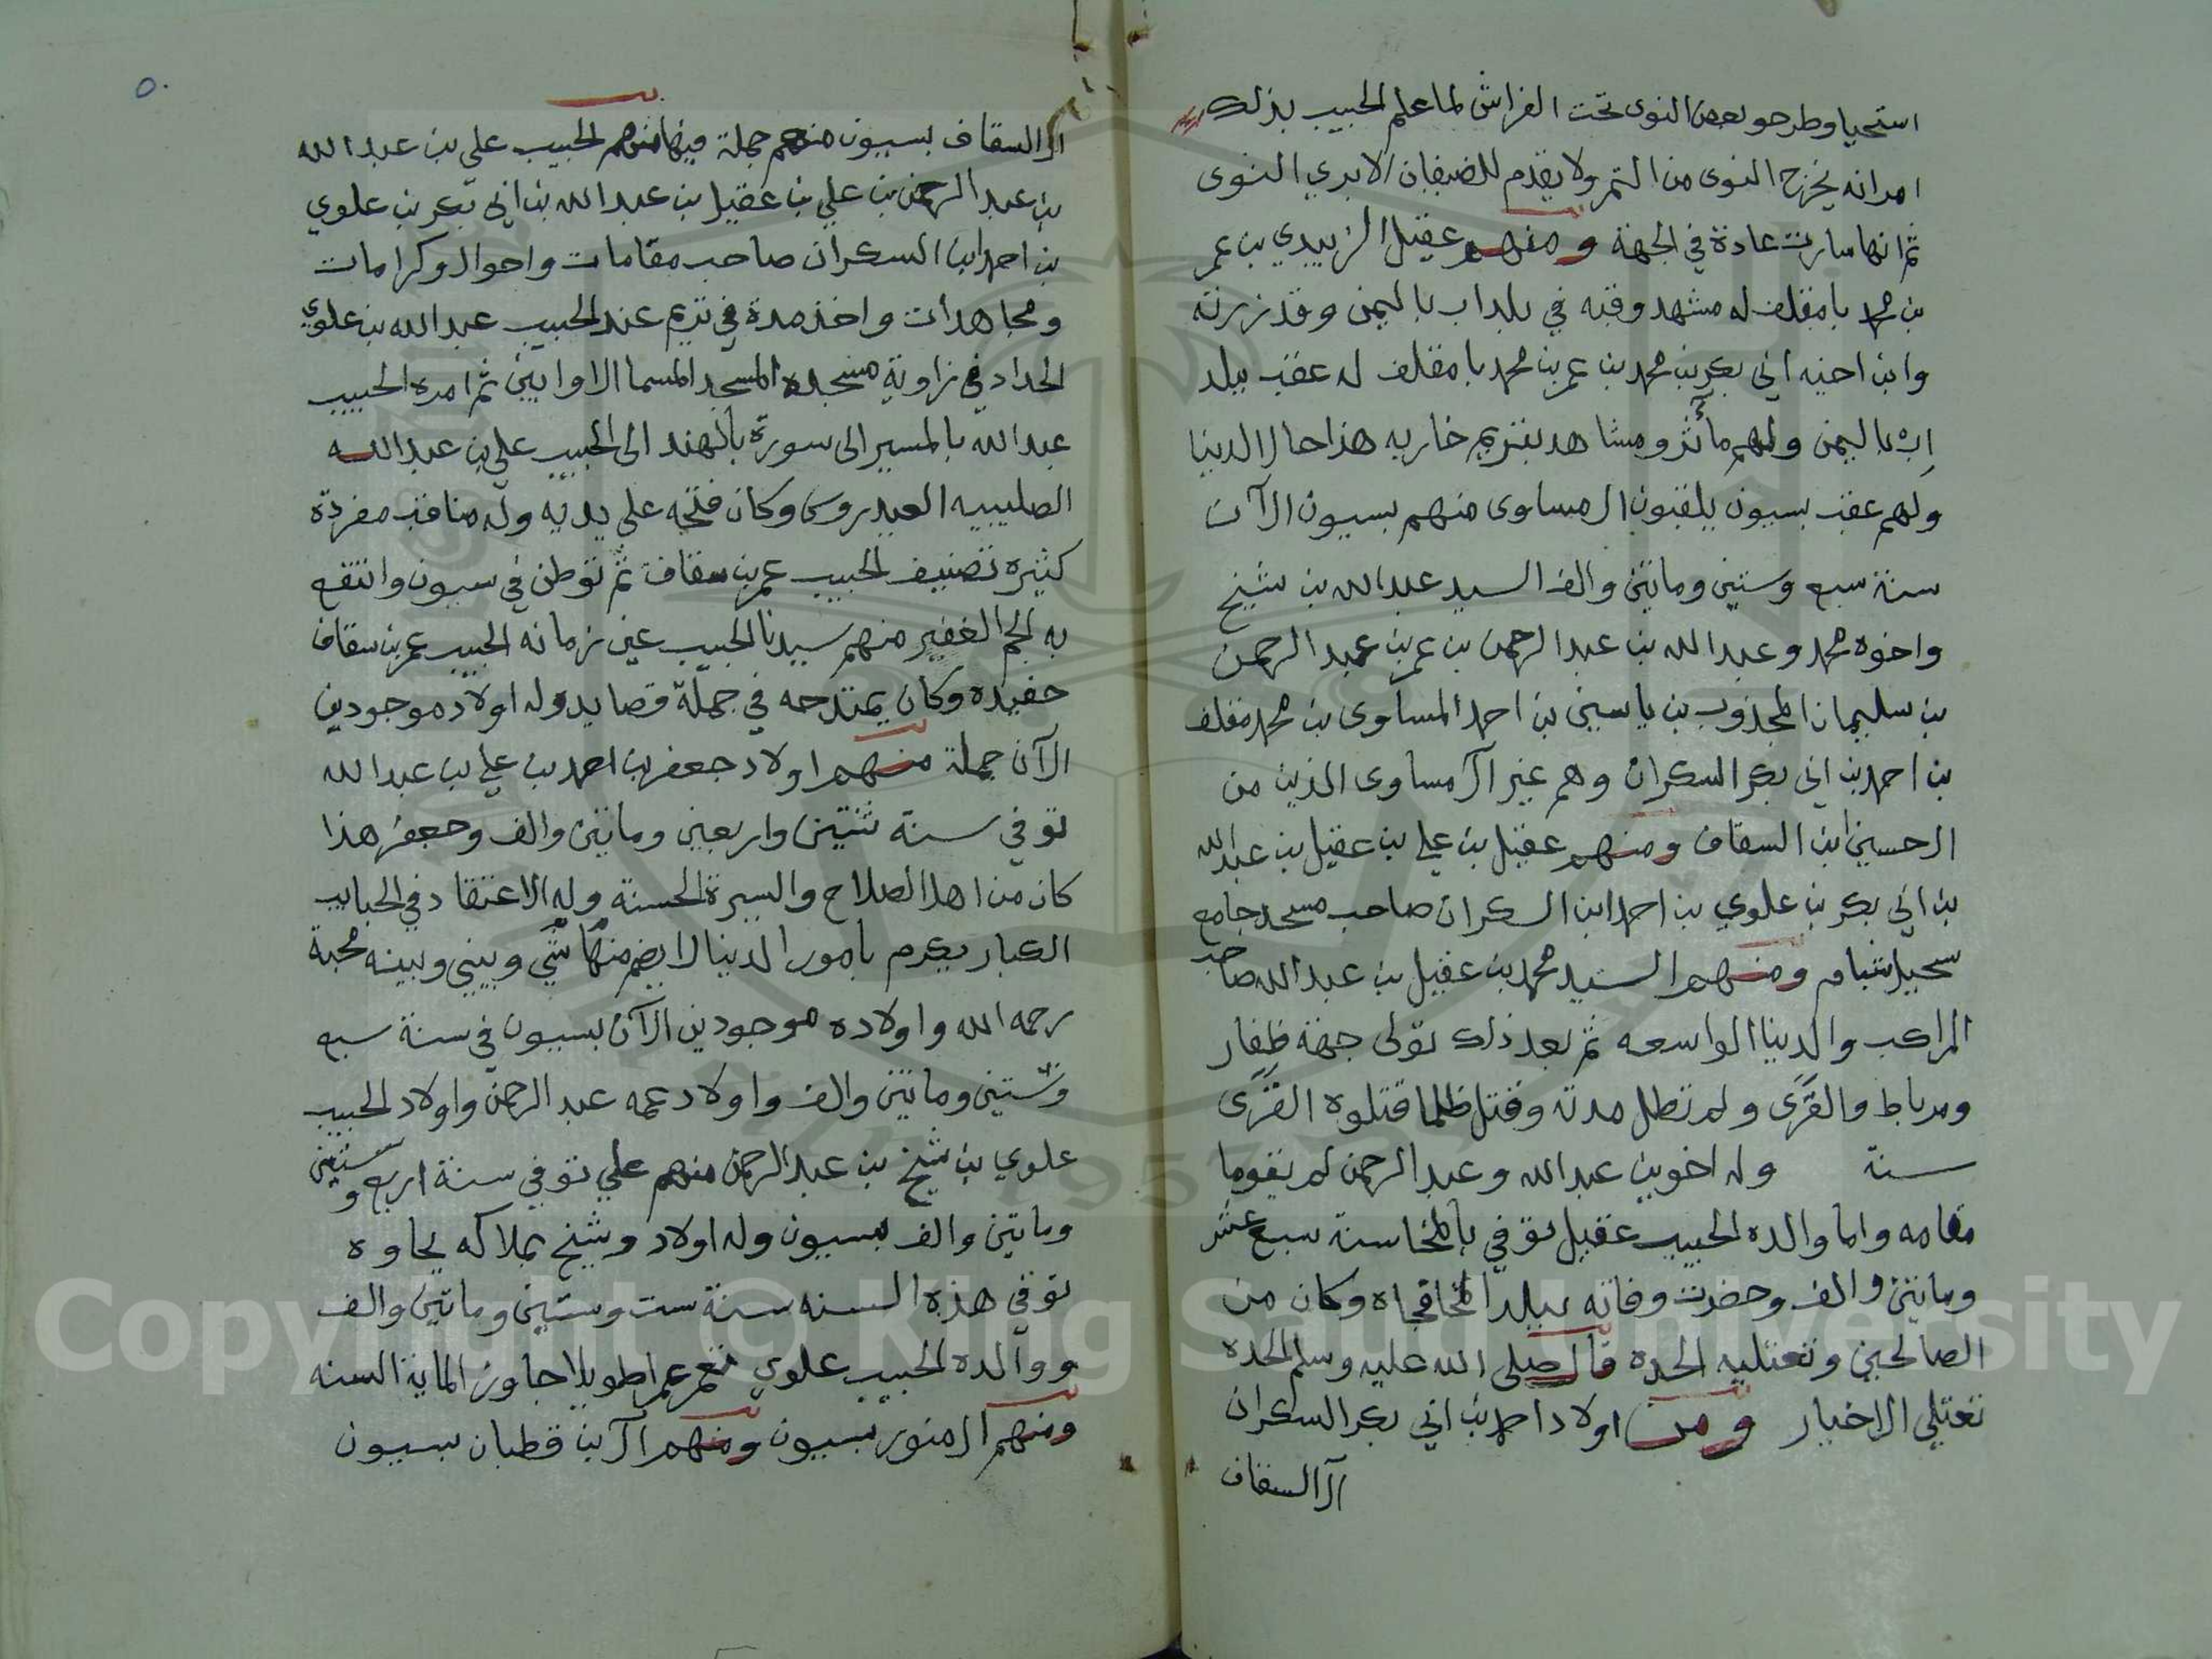 استحيا وطرحو بعض النوى تحت الفراش لما علم الحبيب بذلك
امر انه يخرج النوى من التمر ولا يقدم للضيفان الا بري النوى
ثم انها صارت عادة في الجهة ومنهم عقيل الزبيدي بن عمر
بن محمد بامقلف له مشهد وقبه في بلد اب باليمن وقد زرته
وابن اخيه ابي بكر بن محمد بن عمر بن محمد بامقلف له عقب ببلد
إب باليمن ولهم مآثر ومشاهد بتريم خاربه هذا حال الدنيا
ولهم عقب بسيون يلقبون ال مساوى منهم بسيون الآن
سنة سبع وستين وماتين والف السيد عبدالله بن شيخ
واخوه محمد وعبدالله بن عبدالرحمن بن عمر بن عبدالرحمن
بن سليمان المجذوب بن ياسين بن احمد المساوى بن محمد مقلف
بن احمد بن ابي بكر السكران وهم غير آل مساوى الذين من
ال حسين ابن السقاف ومنهم عقيل بن علي بن عقيل بن عبدالله
بن ابي بكر بن علوي بن احمد ابن السكران صاحب مسجد جامع
سحيل شبام ومنهم السيد محمد بن عقيل بن عبدالله صاحب
المراكب والدنيا الواسعه ثم بعد ذلك تولى جهة ظفار
ومرباط والقرى ولم تطل مدته وقتل ظلما قتلوه القرى
سنة وله اخوين عبدالله وعبدالرحمن لم يقوما
مقامه واما والده الحبيب عقيل توفي بالمخا سنة سبع عشر
وماتين والف وحضرت وفاته ببلد المخا فجاه وكان من
الصالحين وتعتليه الحده قال صلى الله عليه وسلم الحده
تعتلي الاخيار ومن اولاد احمد بن ابي بكر السكران
آل السقاف
٥٠
ال السقاف بسيون منهم جملة فيها منهم الحبيب علي بن عبدالله
بن عبدالرحمن بن علي بن عقيل بن عبدالله بن ابي بكر بن علوي
بن احمد ابن السكران صاحب مقامات واحوال وكرامات
ومجاهدات واخذ مدة في تريم عند الحبيب عبدالله بن علوي
الحداد في زاوية مسجده المسجد المسما الاوابين ثم امره الحبيب
عبدالله بالمسير الى سورة بالهند الى الحبيب علي بن عبدالله
الصليبيه العيدروس وكان فتحه على يديه وله مناقب مفردة
كثيره تصنيف الحبيب عمر بن سقاف ثم توطن في سيون وانتفع
به الجم الغفير منهم سيدنا الحبيب عين زمانه الحبيب عمر بن سقاف
حفيده وكان يمتدحه في جملة قصايد وله اولاد موجودين
الآن جملة منهم اولاد جعفر بن احمد بن علي بن عبدالله
توفي سنة ثنتين واربعين وماتين والف وجعفر هذا
كان من اهل الصلاح والسيرة الحسنة وله الاعتقاد في الحبايب
الكبار يكرم بامور الدنيا لا يضم منها شي وبيني وبينه محبة
رحمه الله واولاده موجودين الآن بسيون في سنة سبع
وستين وماتين والف واولاد عمه عبدالرحمن واولاد الحبيب
علوي بن شيخ بن عبدالرحمن منهم علي توفي سنة اربع وستين
وماتين والف بسيون وله اولاد وشيخ بملاكه بجاوه
توفي هذه السنه سنة ست وستين وماتين والف
ووالده الحبيب علوي عمر عمرا طويلا جاوز الماية السنه
ومنهم ال منور بسيون ومنهم آل بن قطبان بسيون
Copyright © King Saud University
1957